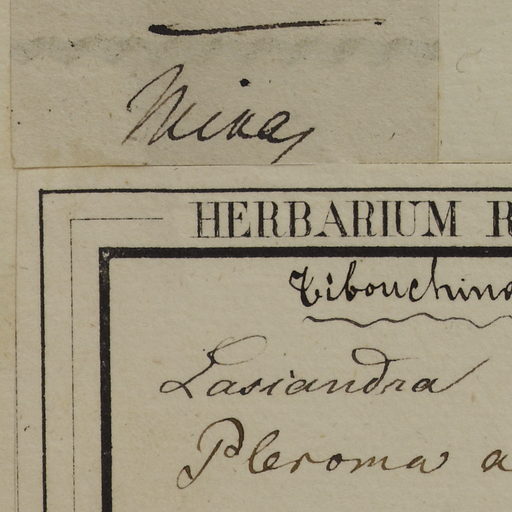 Minas
HERBARIUM R
Tibouchina
Lasiandra
Pleroma a